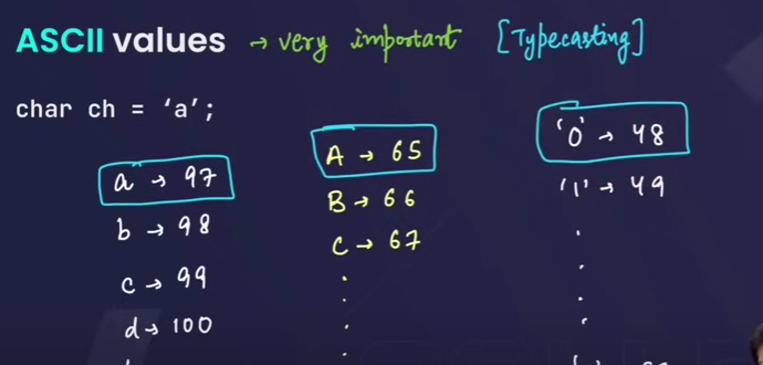 ASCII values → very important [Typecasting]
char ch = 'a';
a → 97
b → 98
c → 99
d → 100
A → 65
B → 66
C → 67
.
.
.
.
'0' → 48
'1' → 49
.
.
.
.